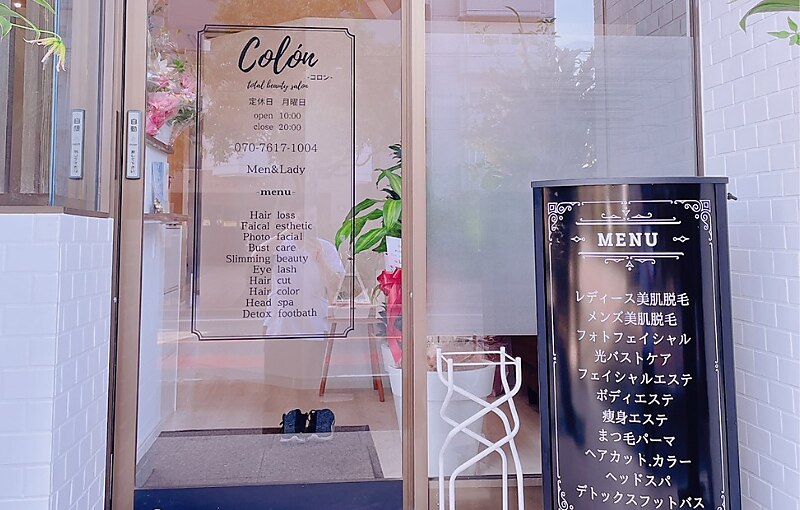 Colón
-コロン-
total beauty salon
定休日 月曜日
open 10:00
close 20:00
070-7617-1004
Men&Lady
-menu-
Hair loss
Faical esthetic
Photo facial
Bust care
Slimming beauty
Eye lash
Hair cut
Hair color
Head spa
Detox footbath
自動
自動
MENU
レディース美肌脱毛
メンズ美肌脱毛
フォトフェイシャル
光バストケア
フェイシャルエステ
ボディエステ
痩身エステ
まつ毛パーマ
ヘアカット.カラー
ヘッドスパ
デトックスフットバス